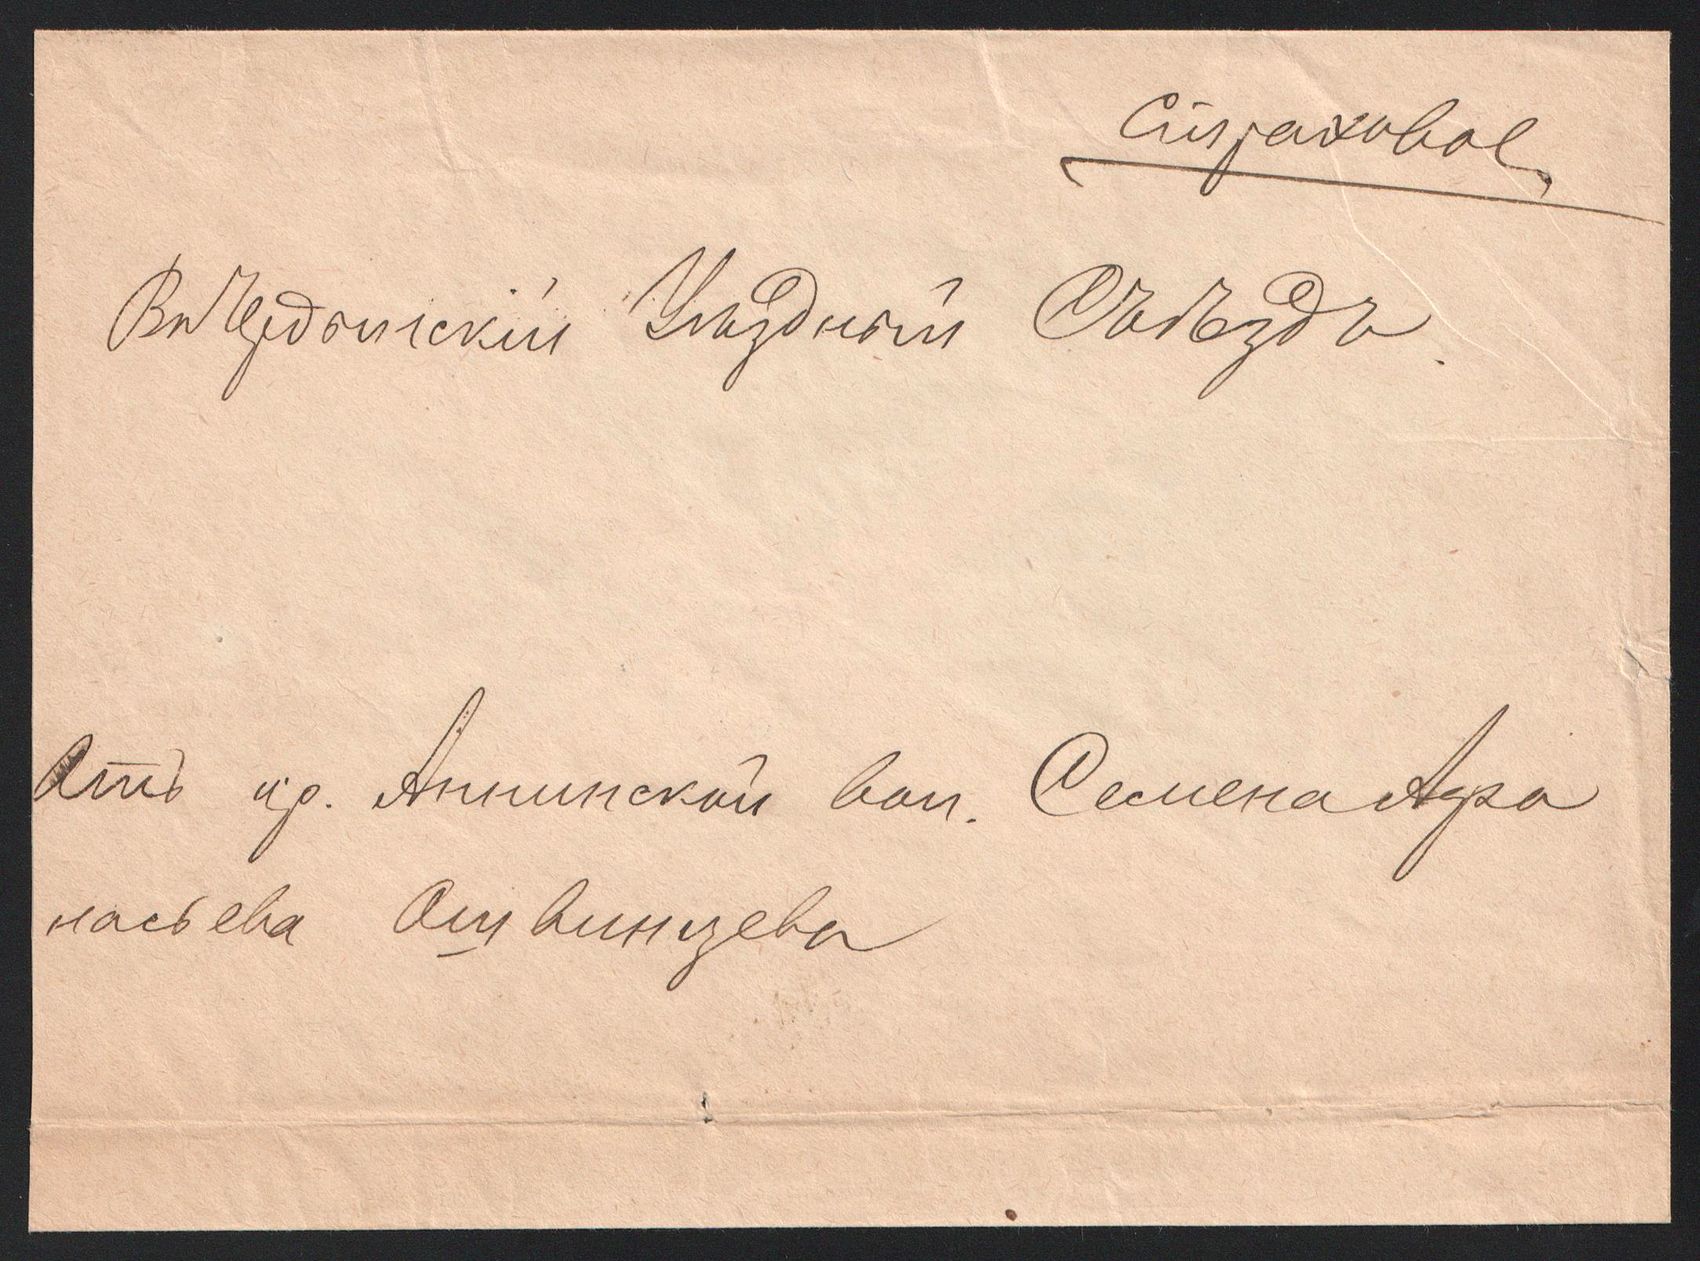 Страховое
Въ Чердынскій Уѣздный Съѣздъ.
Отъ кр. Аннинской вол. Семена Афа
насьева Отвинцева